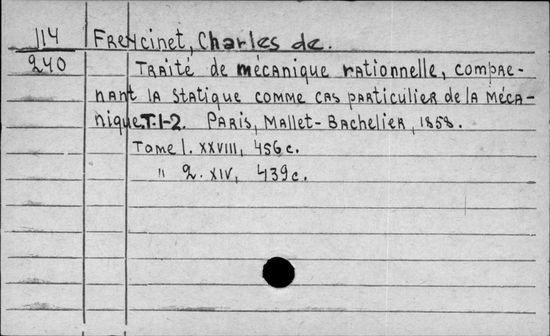 114 Freycinet, Charles de.
240 Traité de mécanique rationnelle, compre-
nant la statique comme cas particulier de la méca-
nique. T. 1-2. Paris, Mallet-Bachelier, 1858.
Tome 1. XXVIII, 456 c.
" 2. XIV, 439 c.